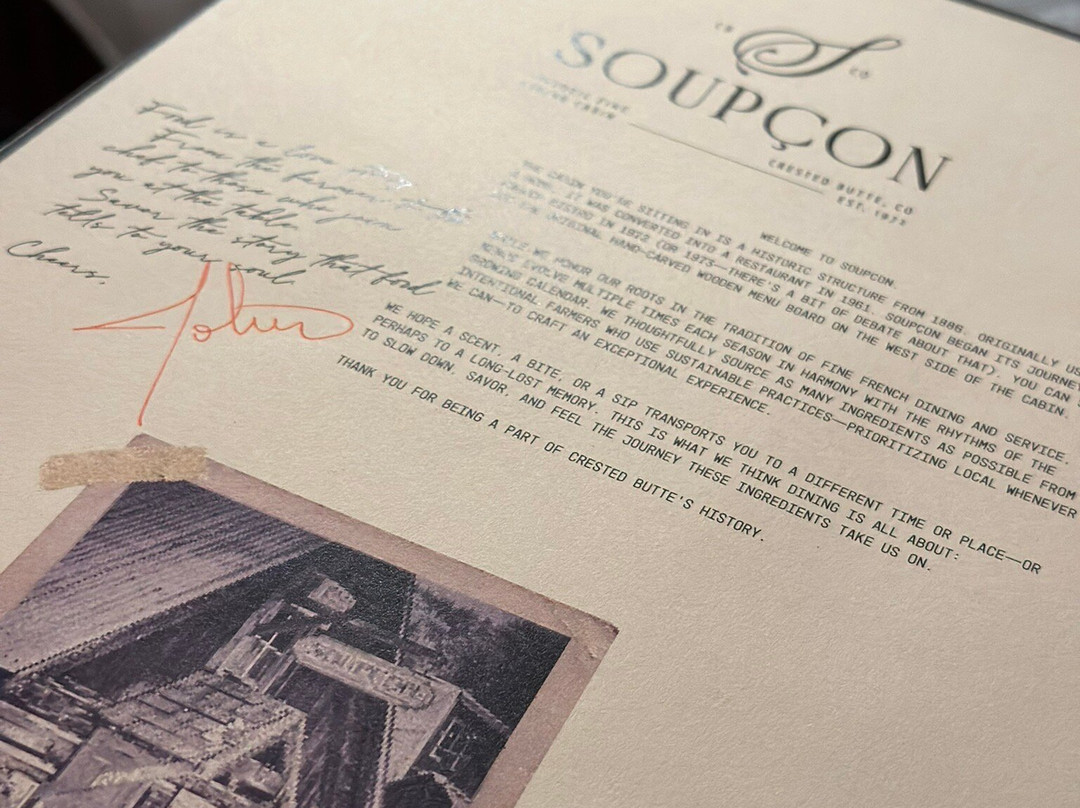 CB
S
CO
SOUPÇON
HISTORIC FINE
DINING CABIN
CRESTED BUTTE, CO
EST. 1972
Food is a love story
From the farmer
you at the table.
Savor the story that food
tells to your soul
Cheers,
John
WELCOME TO SOUPCON.
THE CABIN YOU'RE SITTING IN IS A HISTORIC STRUCTURE FROM 1886. ORIGINALLY
A HOME, IT WAS CONVERTED INTO A RESTAURANT IN 1961. SOUPCON BEGAN ITS JOURNEY
BISTRO IN 1972 (OR 1973—THERE'S A BIT OF DEBATE ABOUT THAT). YOU CAN
THE ORIGINAL HAND-CARVED WOODEN MENU BOARD ON THE WEST SIDE OF THE CABIN.
WHILE WE HONOR OUR ROOTS IN THE TRADITION OF FINE FRENCH DINING AND SERVICE,
MENUS EVOLVE MULTIPLE TIMES EACH SEASON IN HARMONY WITH THE RHYTHMS OF THE
GROWING CALENDAR. WE THOUGHTFULLY SOURCE AS MANY INGREDIENTS AS POSSIBLE FROM
INTENTIONAL FARMERS WHO USE SUSTAINABLE PRACTICES—PRIORITIZING LOCAL WHENEVER
WE CAN—TO CRAFT AN EXCEPTIONAL EXPERIENCE.
WE HOPE A SCENT, A BITE, OR A SIP TRANSPORTS YOU TO A DIFFERENT TIME OR PLACE—OR
PERHAPS TO A LONG-LOST MEMORY. THIS IS WHAT WE THINK DINING IS ALL ABOUT:
TO SLOW DOWN, SAVOR, AND FEEL THE JOURNEY THESE INGREDIENTS TAKE US ON.
THANK YOU FOR BEING A PART OF CRESTED BUTTE'S HISTORY.